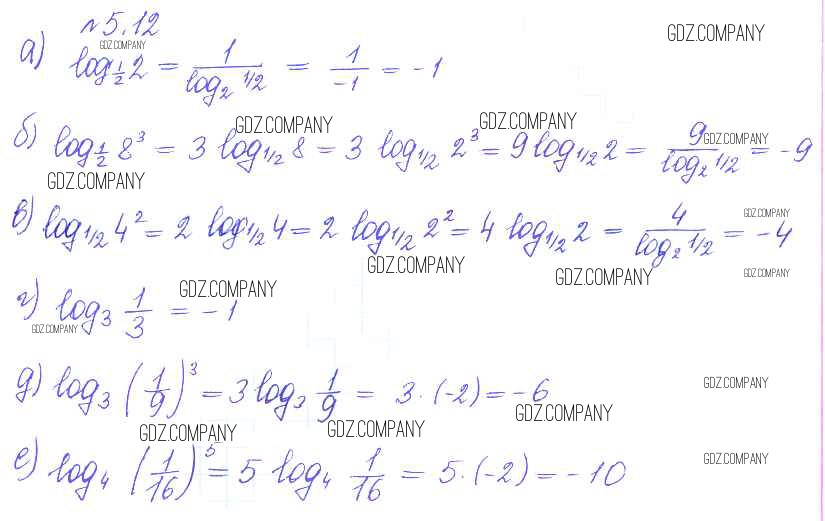 №5.12
GDZ.COMPANY
GDZ.COMPANY
а) log₁/₂ 2 = 1/(log₂ 1/2) = 1/(-1) = -1
GDZ.COMPANY
GDZ.COMPANY
GDZ.COMPANY
б) log₁/₂ 8³ = 3 log₁/₂ 8 = 3 log₁/₂ 2³ = 9 log₁/₂ 2 = 9/(log₂ 1/2) = -9
GDZ.COMPANY
GDZ.COMPANY
в) log₁/₂ 4² = 2 log₁/₂ 4 = 2 log₁/₂ 2² = 4 log₁/₂ 2 = 4/(log₂ 1/2) = -4
GDZ.COMPANY
GDZ.COMPANY
GDZ.COMPANY
GDZ.COMPANY
г) log₃ 1/3 = -1
GDZ.COMPANY
д) log₃ (1/9)³ = 3 log₃ 1/9 = 3·(-2) = -6
GDZ.COMPANY
GDZ.COMPANY
GDZ.COMPANY
GDZ.COMPANY
е) log₄ (1/16)⁵ = 5 log₄ 1/16 = 5·(-2) = -10
GDZ.COMPANY